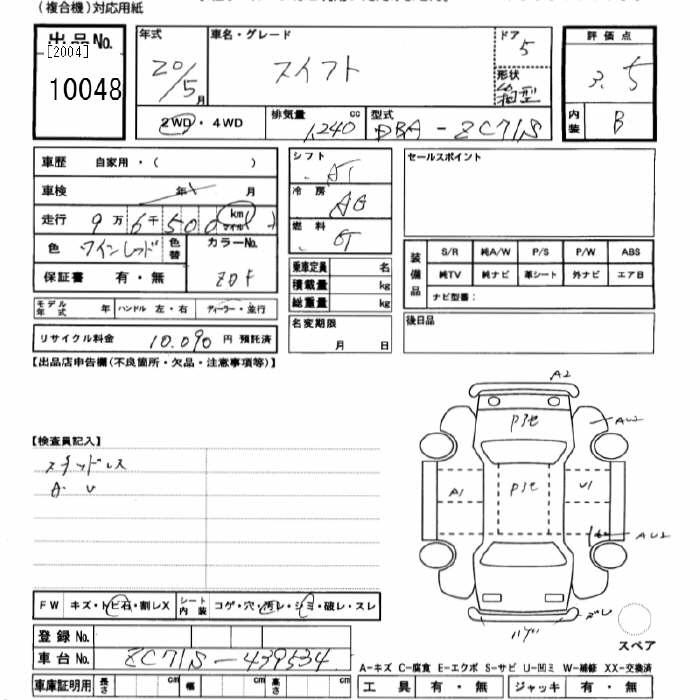 (複合機)対応用紙
出品No.
[2004]
10048
年式
20/5月
車名・グレード
スイフト
ドア
5
形状
箱型
評価点
3.5
内装
B
2WD・4WD
排気量 cc
1,240
型式
DBA-ZC71S
車歴 自家用・( )
車検 年 月
走行 9万 6千 500 km マイル
色 ワインレッド 色替
カラーNo.
Z0F
保証書 有・無
モデル年式 年 ハンドル 左・右 ディーラー・並行
リサイクル料金 10.090 円 預託済
シフト
AT
冷房
AC
燃料
乗車定員 名
積載量 kg
総重量 kg
名変期限
月 日
セールスポイント
装備品
S/R 純A/W P/S P/W ABS
純TV 純ナビ 革シート 外ナビ エアB
ナビ型番:
後日品
【出品店申告欄(不良箇所・欠品・注意事項等)】
【検査員記入】
スタッドレス
A U
A2
P3セ
AU2
A1
P3セ
U1
AU2
ズレ
ハゲ
スペア
FW キズ・トビ石・割レX
シート内装 コゲ・穴・汚レ・シミ・破レ・スレ
登録No.
車台No. ZC71S-439534
車庫証明用 長さ cm 幅 cm 高さ cm
A-キズ C-腐食 E-エクボ S-サビ U-凹ミ W-補修 XX-交換済
工具 有・無 ジャッキ 有・無